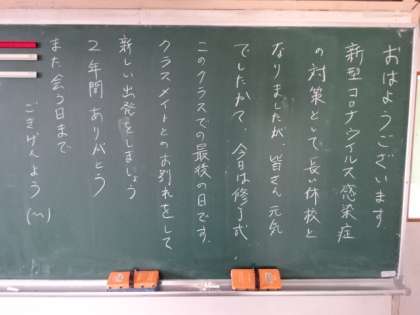 おはようございます
新型コロナウイルス感染症
の対策として、長い休校と
なりましたが、皆さん元気
でしたか?、今日は修了式、
このクラスでの最後の日です。
クラスメイトとのお別れをして
新しい出発をしましょう
2年間ありがとう
また会う日まで
ごきげんよう(^^)